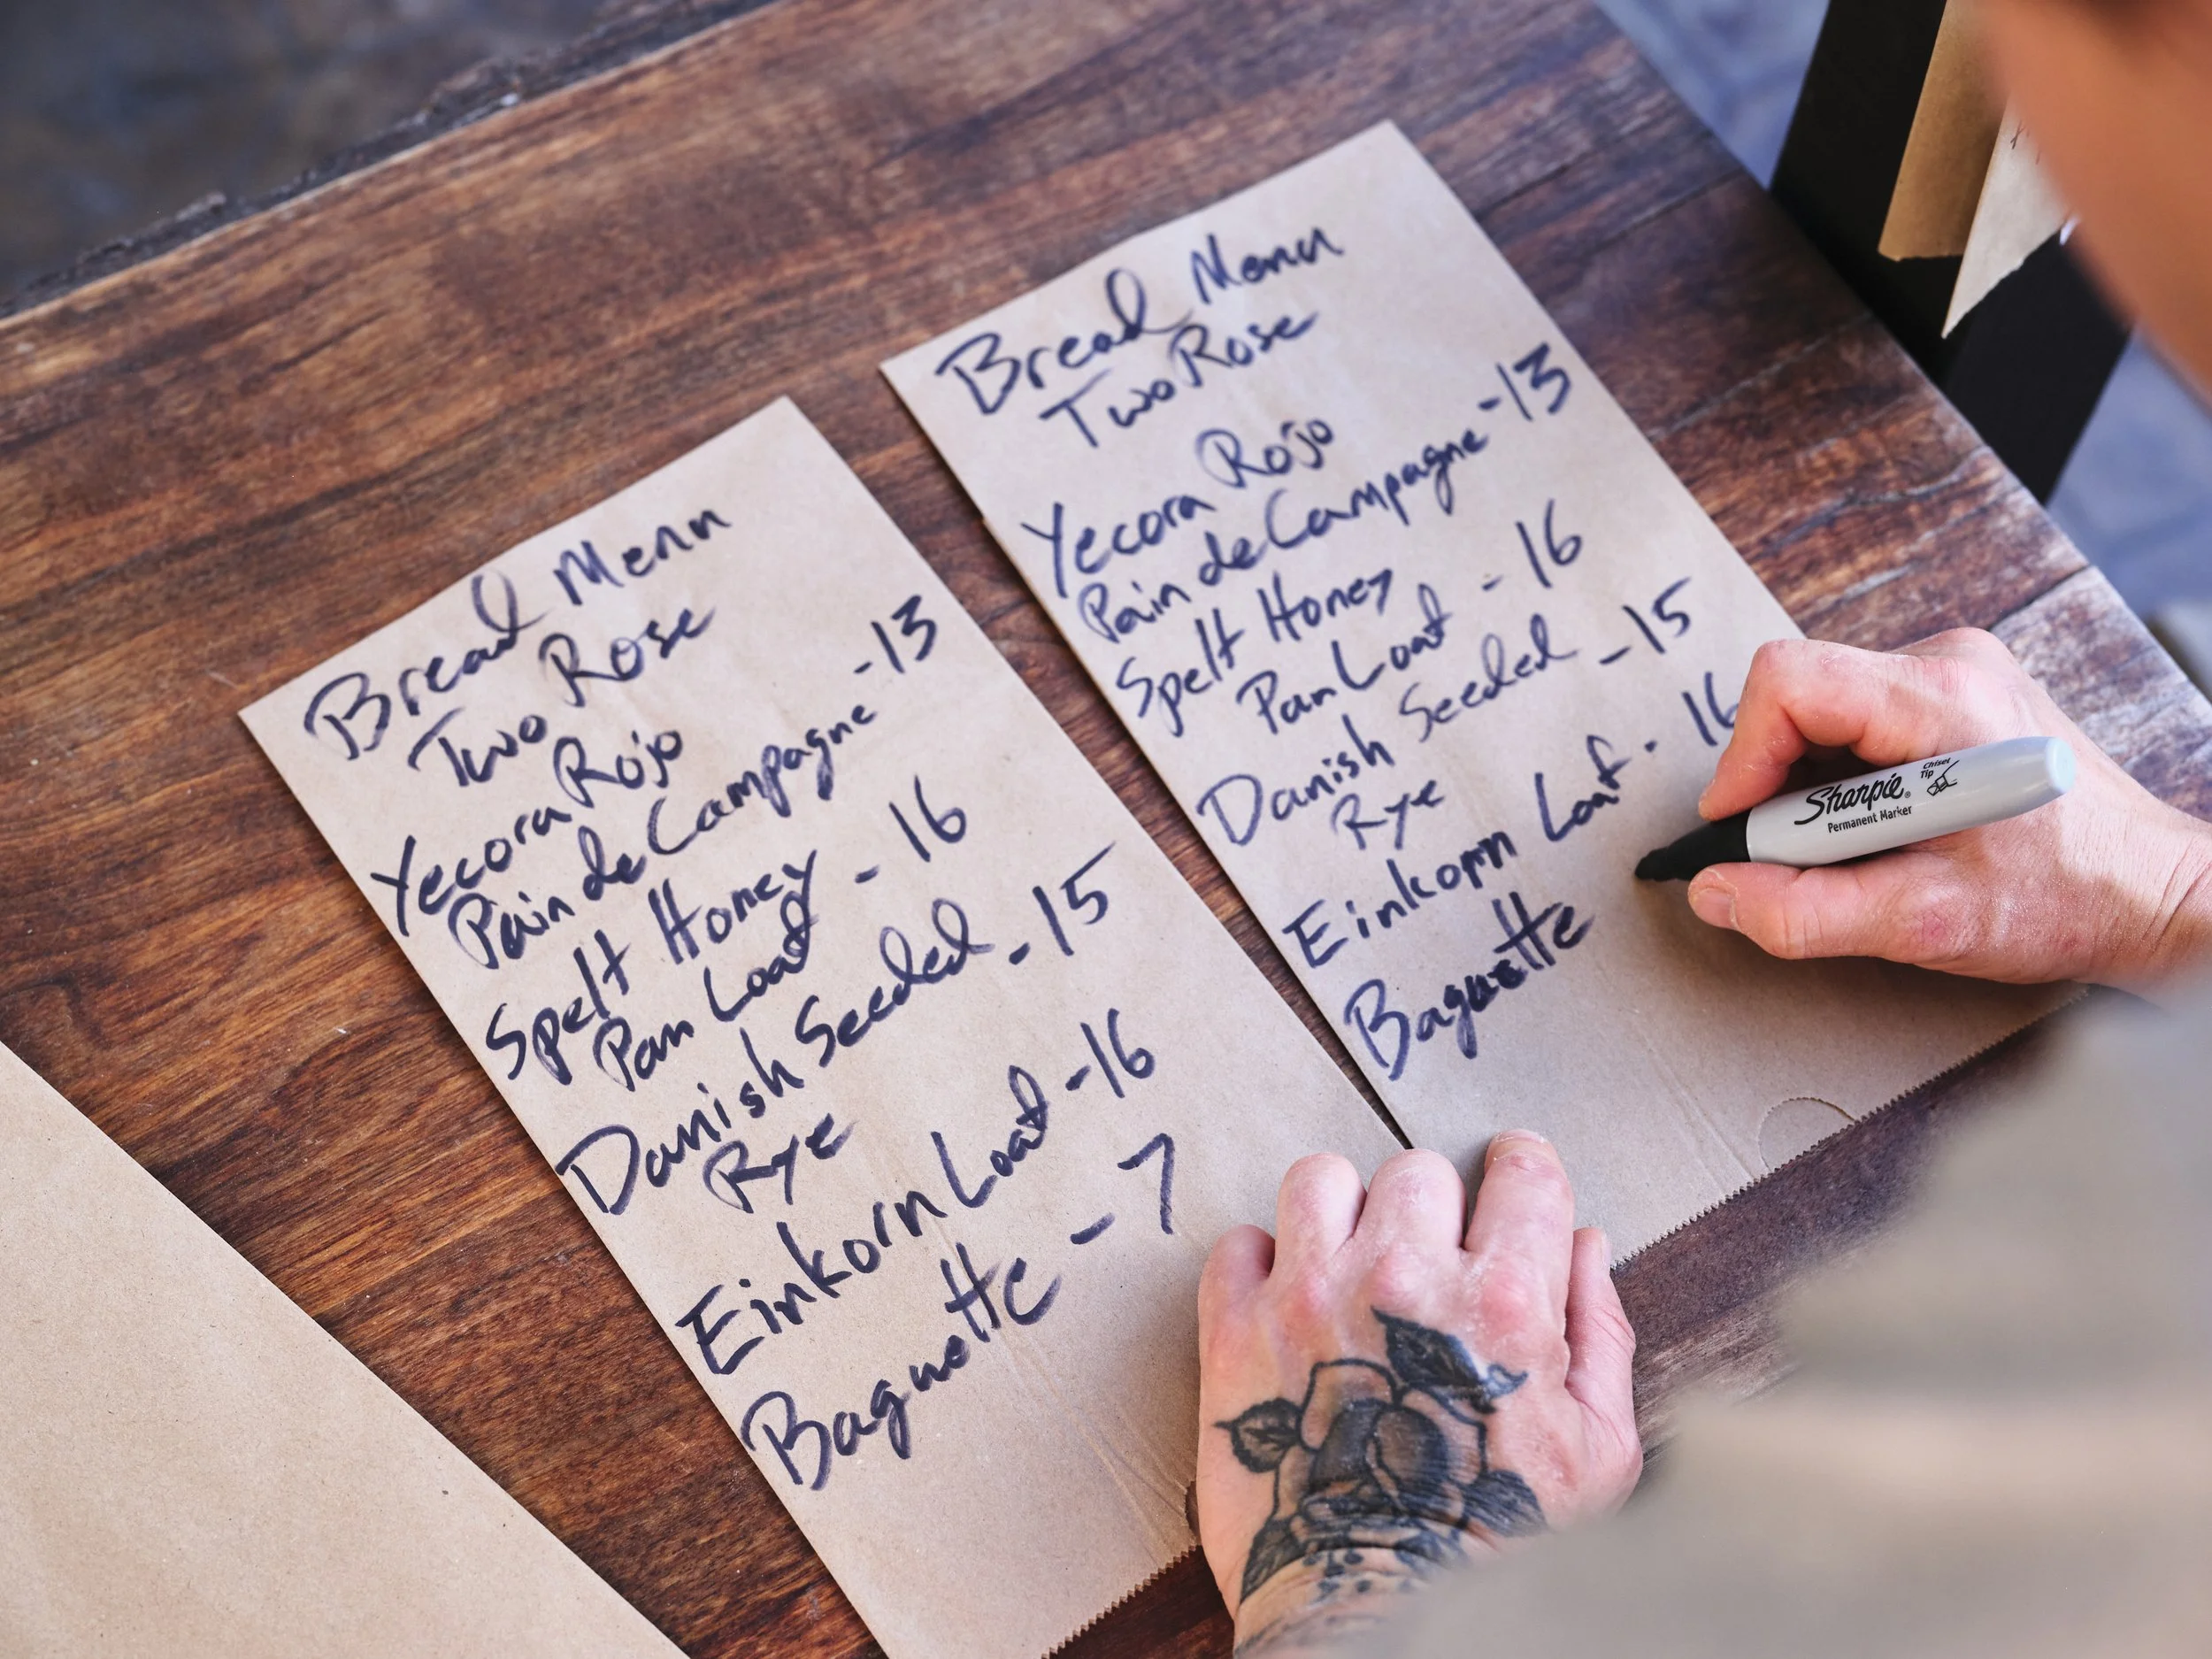 Bread Menu
Two Rose
Yecora Rojo
Pain de Campagne -13
Spelt Honey
Pan Loaf - 16
Danish Seeded - 15
Rye
Einkorn Loaf -16
Baguette - 7
Bread Menu
Two Rose
Yecora Rojo
Pain de Campagne -13
Spelt Honey
Pan Loaf - 16
Danish Seeded - 15
Rye
Einkorn Loaf - 16
Baguette
Sharpie®
Permanent Marker
Chisel
Tip